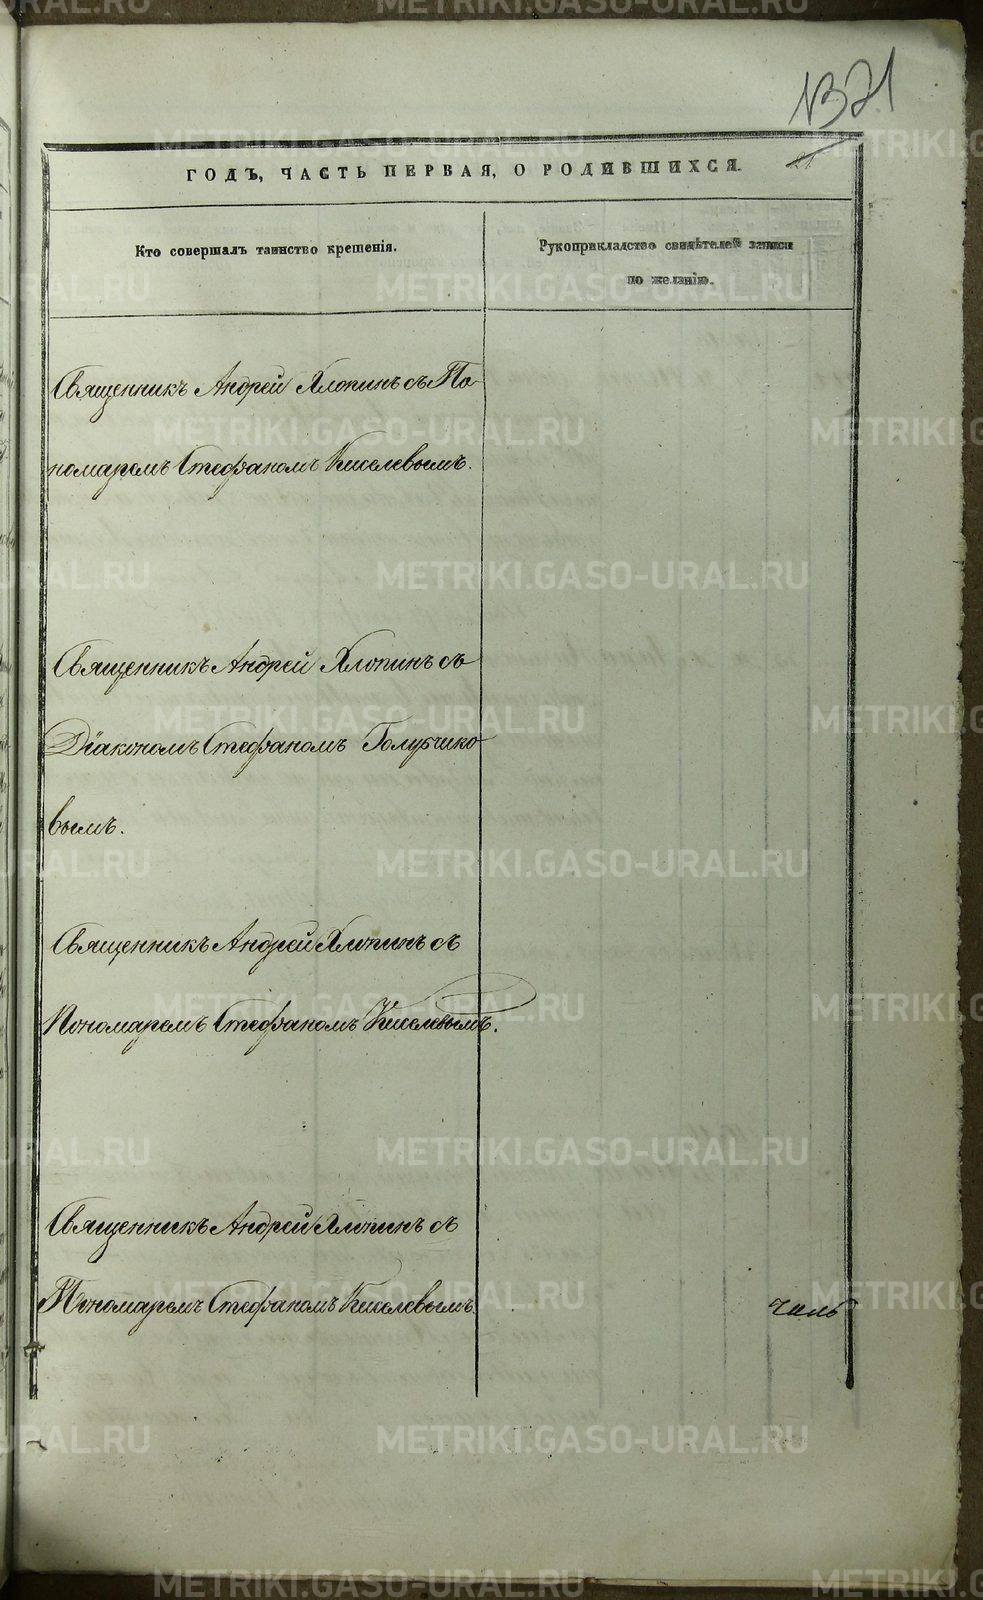 ГОДЪ, ЧАСТЬ ПЕРВАЯ, О РОДИВШИХСЯ.
Кто совершалъ таинство крещенія.
Рукоприкладство свидѣтелей записи
по желанію.
Священникъ Андрей Хлопинъ съ По-
номаремъ Стефаномъ Киселевымъ.
Священникъ Андрей Хлопинъ съ
Діакономъ Стефаномъ Голубчико-
вымъ.
Священникъ Андрей Хлопинъ съ
Пономаремъ Стефаномъ Киселевымъ.
Священникъ Андрей Хлопинъ съ
Пономаремъ Стефаномъ Киселевымъ.
METRIKI.GASO-URAL.RU